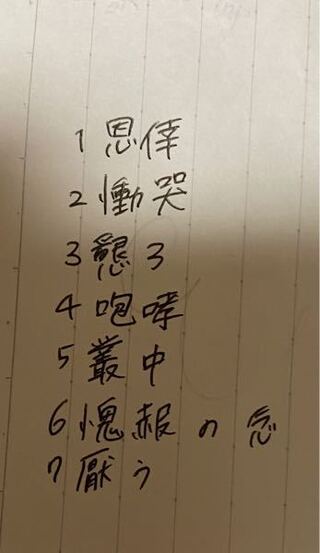 1 恩倖
2 慟哭
3 懇ろ
4 咆哮
5 叢中
6 愧赧の念
7 厭う